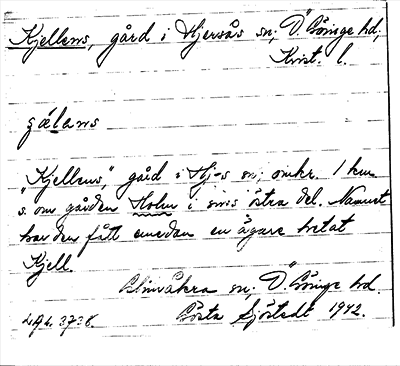 Kjellens, gård i Hjersås sn; Ö. Göinge hd,
Krist. l.
gǽlans
"Kjellens," gård i Hj-s sn, omkr. 1 km
s. om gården Holm i sns östra del. Namnet
har den fått emedan en ägare hetat
Kjell.
Glimåkra sn; Ö. Göinge hd.
Gösta Sjöstedt 1942.